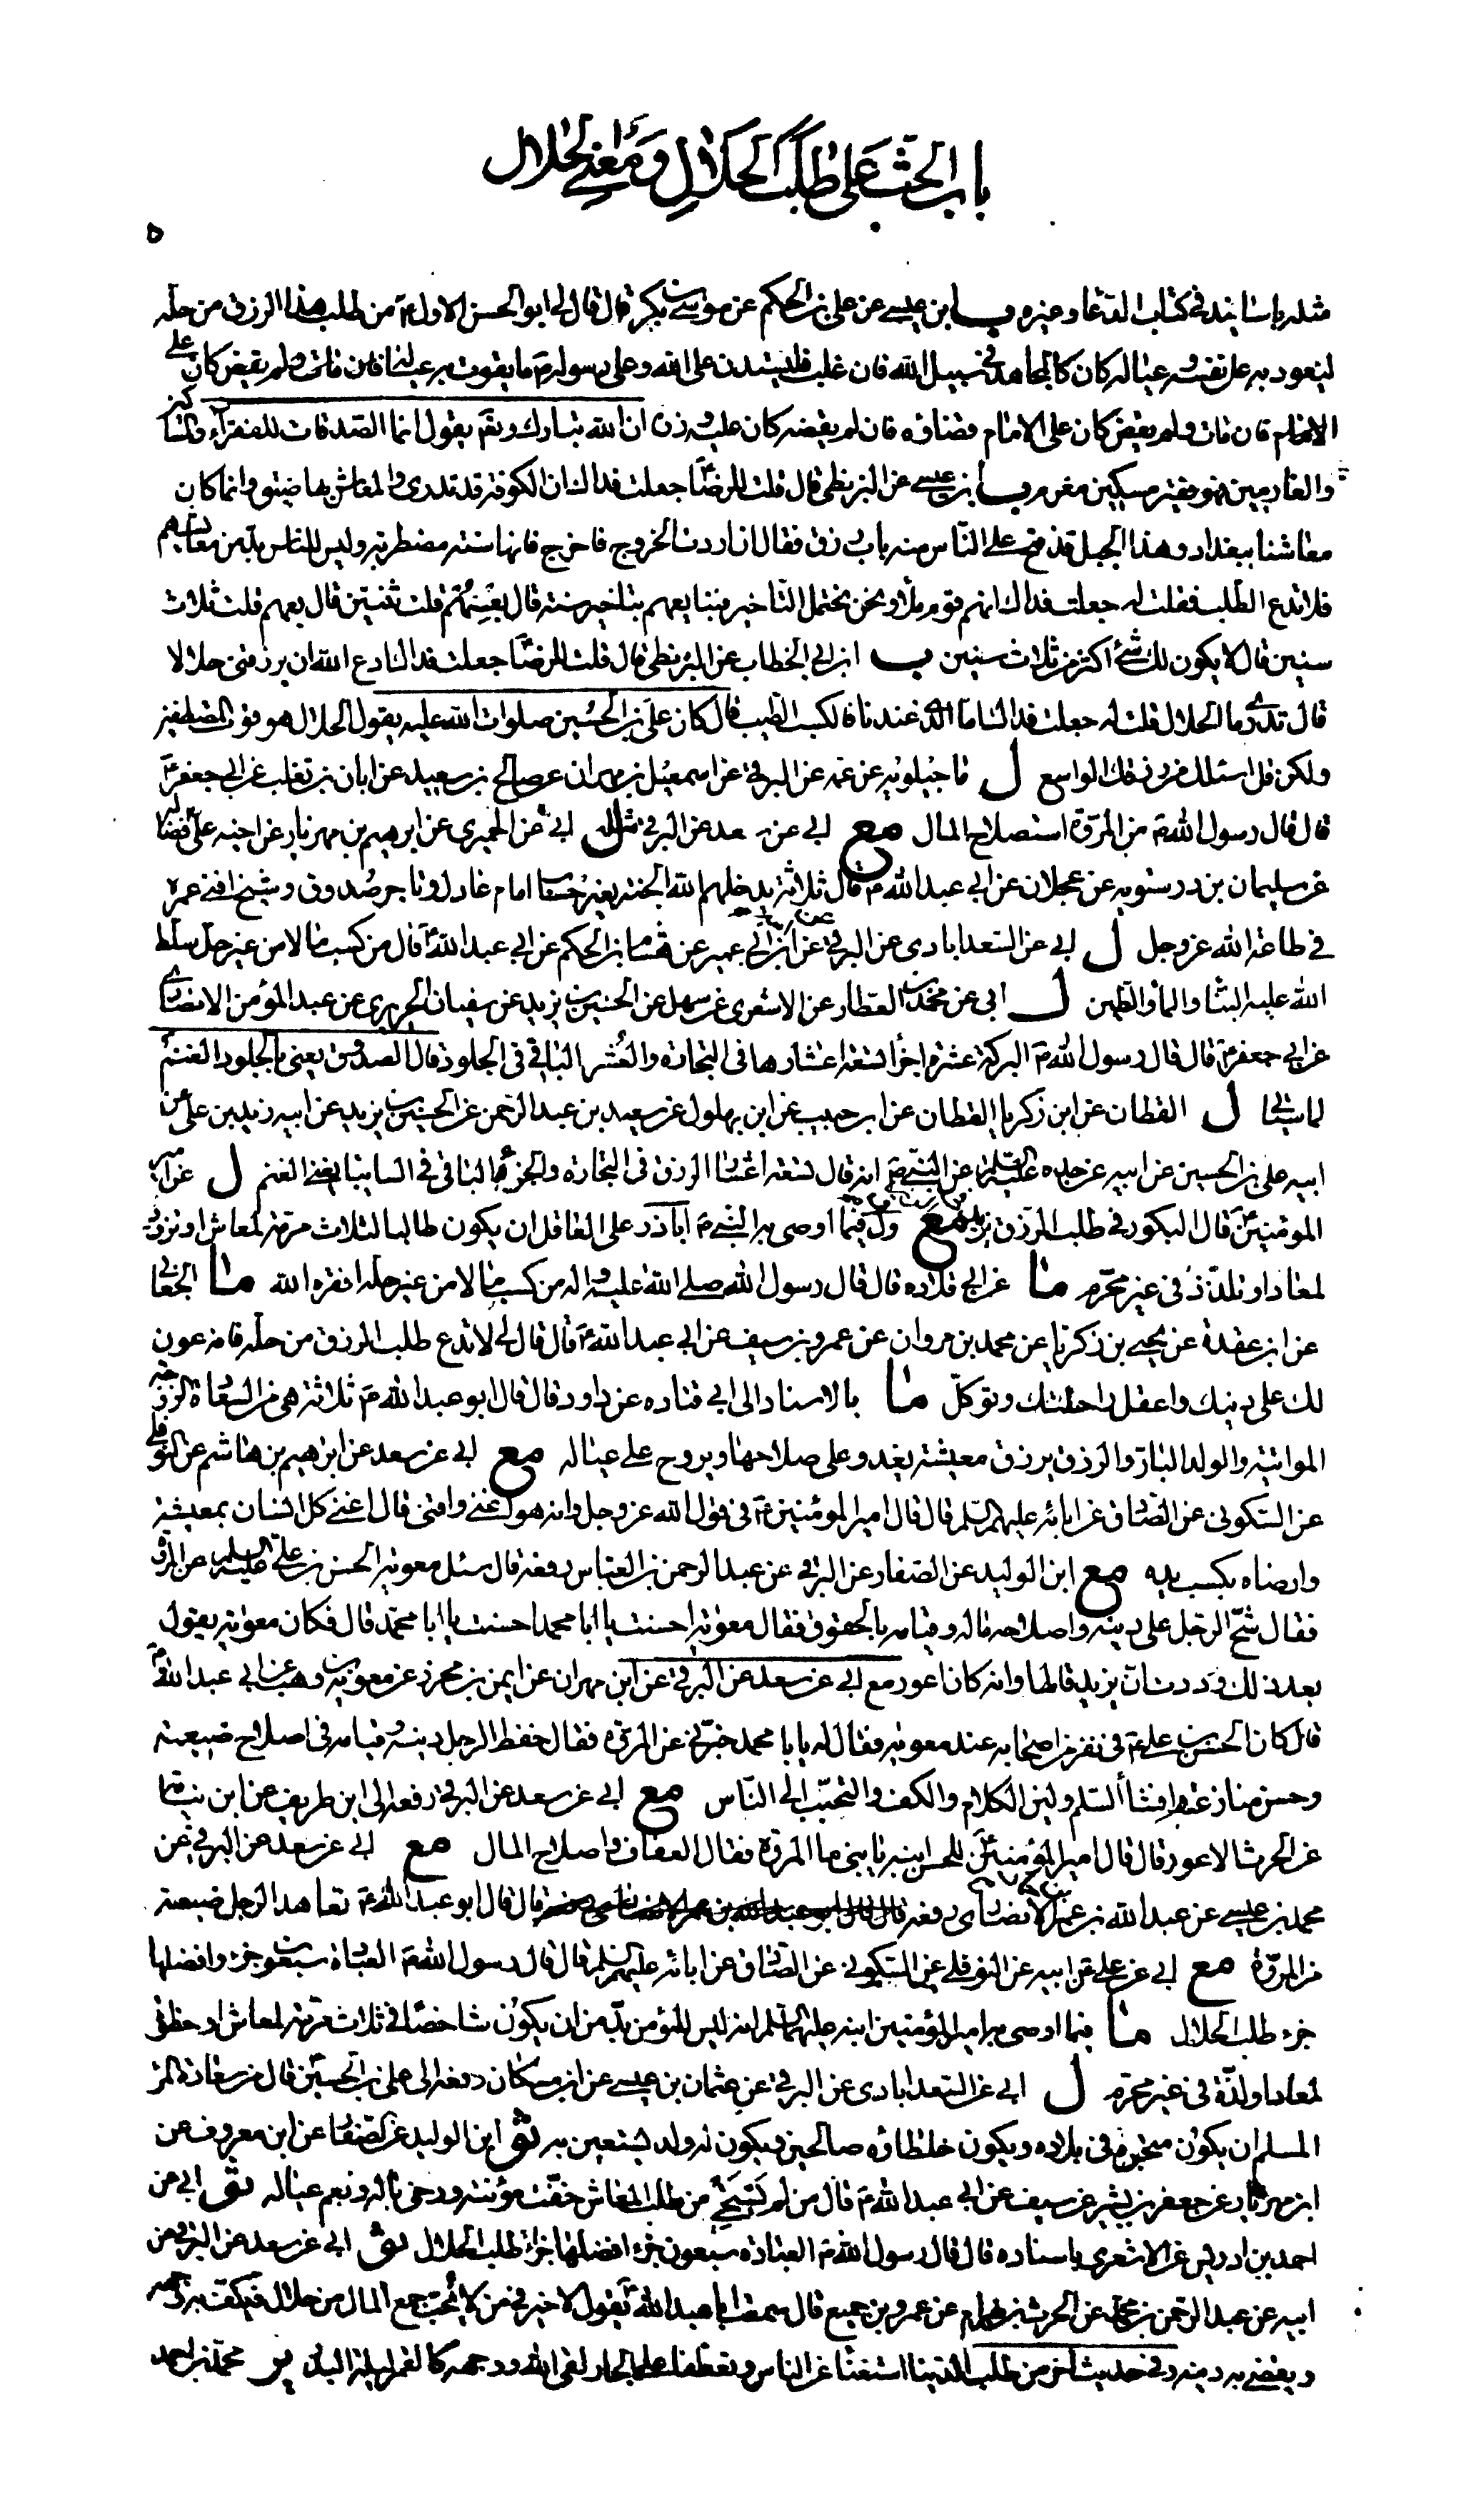 باب الحث على طلب الحلال ومعنى الحلال
مثله باسانيد في كتاب الدعا وغيره ب ابن عيسى عن على بن الحكم عن موسى بن بكر قال قال لى ابو الحسن الاول ع من طلب هذا الرزق من حله
ليعود به على نفسه وعياله كان كالمجاهد في سبيل الله فان غلب فليستدن على الله وعلى رسوله ص ما يقوت به عياله فان مات ولم يقض كان على
الامام فان مات ولم يقض كان على الامام قضاؤه فان لم يقضه كان عليه وزره ان الله تبارك وتع يقول انما الصدقات للفقرآء والمساكين
والغارمين فهو فقير مسكين مغرم ب ابن عيسى عن البزنطى قال قلت للرضا ع جعلت فداك ان الكوفة قد تدرى والمعاش بها ضيق وانما كان
معاشنا ببغداد وهذا الجبل قد فتح على الناس منه باب رزق فقال ان اردت الخروج فاخرج فانها سنة مضطربة وليس للناس بد من معايشهم
فلا تدع الطلب فقلت له جعلت فداك انهم قوم ملاء ونحن نحتمل التاخير فنبايعهم بتاخير سنة قال بعهم قلت سنتين قال بعهم قلت ثلاث
سنين قال لا يكون لك شئ اكثر من ثلاث سنين ب ابن ابى الخطاب عن البزنطى قال قلت للرضا ع جعلت فداك ادع الله ان يرزقنى حلالا
قال تدرى ما الحلال قلت له جعلت فداك اما الذى عندنا فالكسب الطيب قال كان على بن الحسين صلوات الله عليه يقول الحلال هو قوت المصطفين
ولكن قل اسئلك من رزقك الواسع ل ماجيلويه عن عمه عن البرقى عن اسمعيل بن مهران عن صالح بن سعيد عن ابان بن تغلب عن ابى جعفر ع
قال قال رسول الله ص من المروة استصلاح المال مع ابى عن سعد عن البرقى مثله ل ابى عن الحميرى عن ابرهيم بن مهزيار عن اخيه على عن فضاله
عن سليمان بن درستويه عن عجلان عن ابى عبد الله ع قال ثلاثة يدخلهم الله الجنة بغير حساب امام عادل وتاجر صدوق وشيخ افنى عمره
في طاعة الله عز وجل ل ابى عن السعدابادى عن البرقى عن ابيه عن ابن ابى عمير عن هشام بن الحكم عن ابى عبد الله ع قال من كسب مالا من غير حله سلط
الله عليه البناء والماء والطين ل ابى عن محمد العطار عن الاشعرى عن سهل عن الحسين بن يزيد عن سفيان الحريرى عن عبد المؤمن الانصارى
عن ابى جعفر ع قال قال رسول الله ص البركة عشرة اجزاء تسعة اعشارها في التجارة والعشر الباقى في الجلود قال الصدوق يعنى بالجلود الغنم
ل القطان عن ابن زكريا القطان عن ابن حبيب عن ابن بهلول عن سعيد بن عبد الرحمن عن الحسين بن يزيد عن ابيه زيد بن على عن
ابيه على بن الحسين عن ابيه عن جده عليهم السلم عن النبي ص انه قال تسعة اعشار الرزق في التجارة والجزء الباقى في السابيا يعنى الغنم ل عن امير
المؤمنين ع قال البكور في طلب الرزق يزيد مع ول فيما اوصى به النبي ص اباذر على العاقل ان يكون طالبا لثلاث مرمة لمعاش او تزود
لمعاد او تلذذ في غير محرم ما عن ابى قلابه قال قال رسول الله صلى الله عليه واله من كسب مالا من غير حله افقره الله ما
عن ابن عقدة عن يحيى بن زكريا عن محمد بن مروان عن عمرو بن سيف عن ابى عبد الله ع قال قال لى لا تدع طلب الرزق من حله فانه عون
لك على دينك واعقل راحلتك وتوكل ما بالاسناد الى ابى قتاده عن داود قال قال ابو عبد الله ع ثلاثة هى من السعادة الزوجه
المواتيه والولد البار والرزق يرزق معيشة يغدو على صلاحها ويروح على عياله مع ابى عن سعد عن ابرهيم بن هاشم عن النوفلى
عن السكونى عن الصادق عن ابائه عليهم السلم قال قال امير المؤمنين ع في قول الله عز وجل وانه هو اغنى واقنى قال اغنى كل انسان بمعيشته
وارضاه بكسب يده مع ابن الوليد عن الصفار عن البرقى عن عبد الرحمن بن العباس رفعه قال سئل معوية الحسن بن على عليه السلم عن المروة
فقال شح الرجل على دينه واصلاحه ماله وقيامه بالحقوق فقال معوية احسنت يا ابا محمد احسنت يا ابا محمد قال فكان معوية يقول
بعد ذلك وددت ان يزيد قالها وانه كان اعور مع ابى عن سعد عن البرقى عن ابن مهران عن ايمن بن محرز عن معوية بن وهب عن ابى عبد الله ع
قال كان الحسن بن على ع في نفر من اصحابه عند معوية فقال له يا ابا محمد خبرنى عن المروة فقال حفظ الرجل دينه وقيامه في اصلاح ضيعته
وحسن منازعته وافشاء السلم ولين الكلام والكف والتحبب الى الناس مع ابى عن سعد عن البرقى رفعه الى ابن طريف عن ابن نباته
عن الحرث الاعور قال قال امير المؤمنين ع للحسن ابنه يا بنى ما المروة فقال العفاف واصلاح المال مع ابى عن سعد عن البرقى عن
محمد بن عيسى عن عبد الله بن عمر الانصارى رفعه قال قال ابو عبد الله ع تعاهد الرجل ضيعته
من المروة مع ابى عن على عن ابيه عن النوفلى عن السكونى عن الصادق عن ابائه عليهم السلم قال قال رسول الله ص العبادة سبعون جزء وافضلها
جزء طلب الحلال ما فيما اوصى به امير المؤمنين ابنه عليهما السلم انه ليس للمؤمن بد من ان يكون شاخصا في ثلاث مرمة لمعاش او حظوة
لمعاد او لذة في غير محرم ل ابى عن السعدابادى عن البرقى عن عثمان بن عيسى عن ابن مسكان رفعه الى على بن الحسين ع قال من سعادة المرء
المسلم ان يكون متجره في بلاده ويكون خلطاؤه صالحين ويكون له ولد يستعين به ثو ابن الوليد عن الصفار عن ابن معروف عن
ابن مهزيار عن جعفر بن بشير عن سيف عن ابى عبد الله ع قال من لم يستحى من طلب المعاش خفت مؤنته ورخى باله ونعم عياله ثو ابى عن
احمد بن ادريس عن الاشعرى باسناده قال قال رسول الله ص العبادة سبعون جزء افضلها جزء طلب الحلال ثو ابى عن سعد عن البرقى عن
ابيه عن عبد الرحمن بن محمد عن الحرث بن بهرام عن عمرو بن جميع قال سمعت ابا عبد الله ع يقول لا خير في من لا يحب جمع المال من حلال فيكف به وجهه
ويقضى به دينه وفي حديث اخر من طلب الدنيا استغناء عن الناس وتعطفا على الجار لقى الله ووجهه كالقمر ليلة البدر ير محمد بن احمد